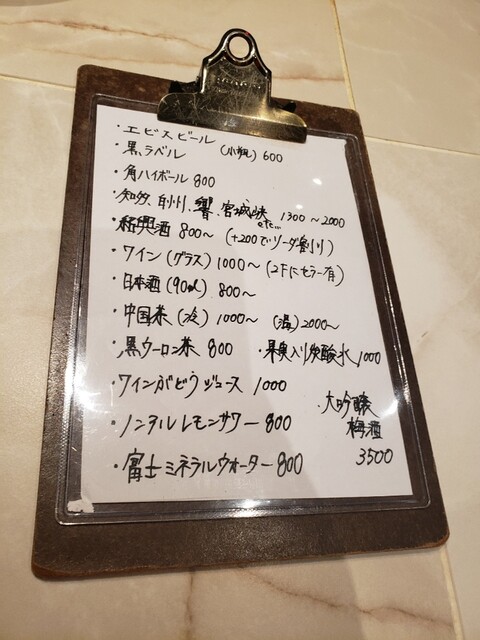 ・エビスビール
・黒ラベル (小瓶) 600
・角ハイボール 800
・知多、白州、響、宮城峡 etc... 1300～2000
・紹興酒 800～ (+200でソーダ割り)
・ワイン (グラス) 1000～ (2Fにセラー有)
・日本酒 (90ml) 800～
・中国茶 (冷) 1000～ (温) 2000～
・黒ウーロン茶 800 ・果実入り炭酸水 1000
・ワインぶどうジュース 1000
・大吟醸
梅酒
3500
・ノンアルレモンサワー 800
・富士ミネラルウォーター 800